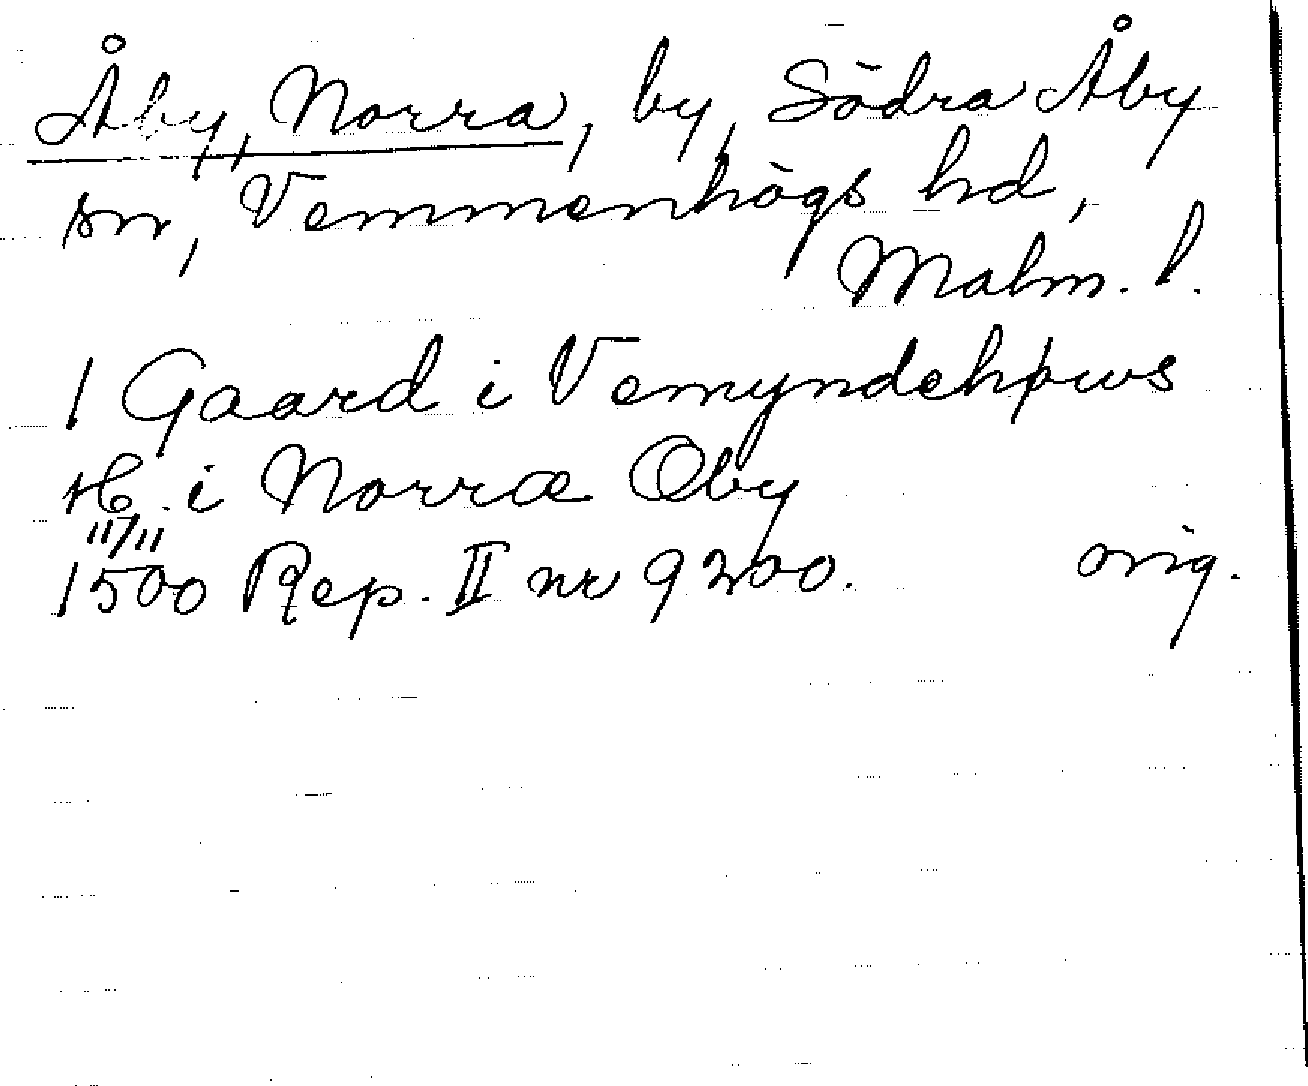 Åby, Norra, by, Södra Åby
sn, Vemmenhögs hd,
Malm. l.
1 Gaard i Vemyndehøws
H. i Norræ Oby
11/11
1500 Rep. II nr 9200. orig.